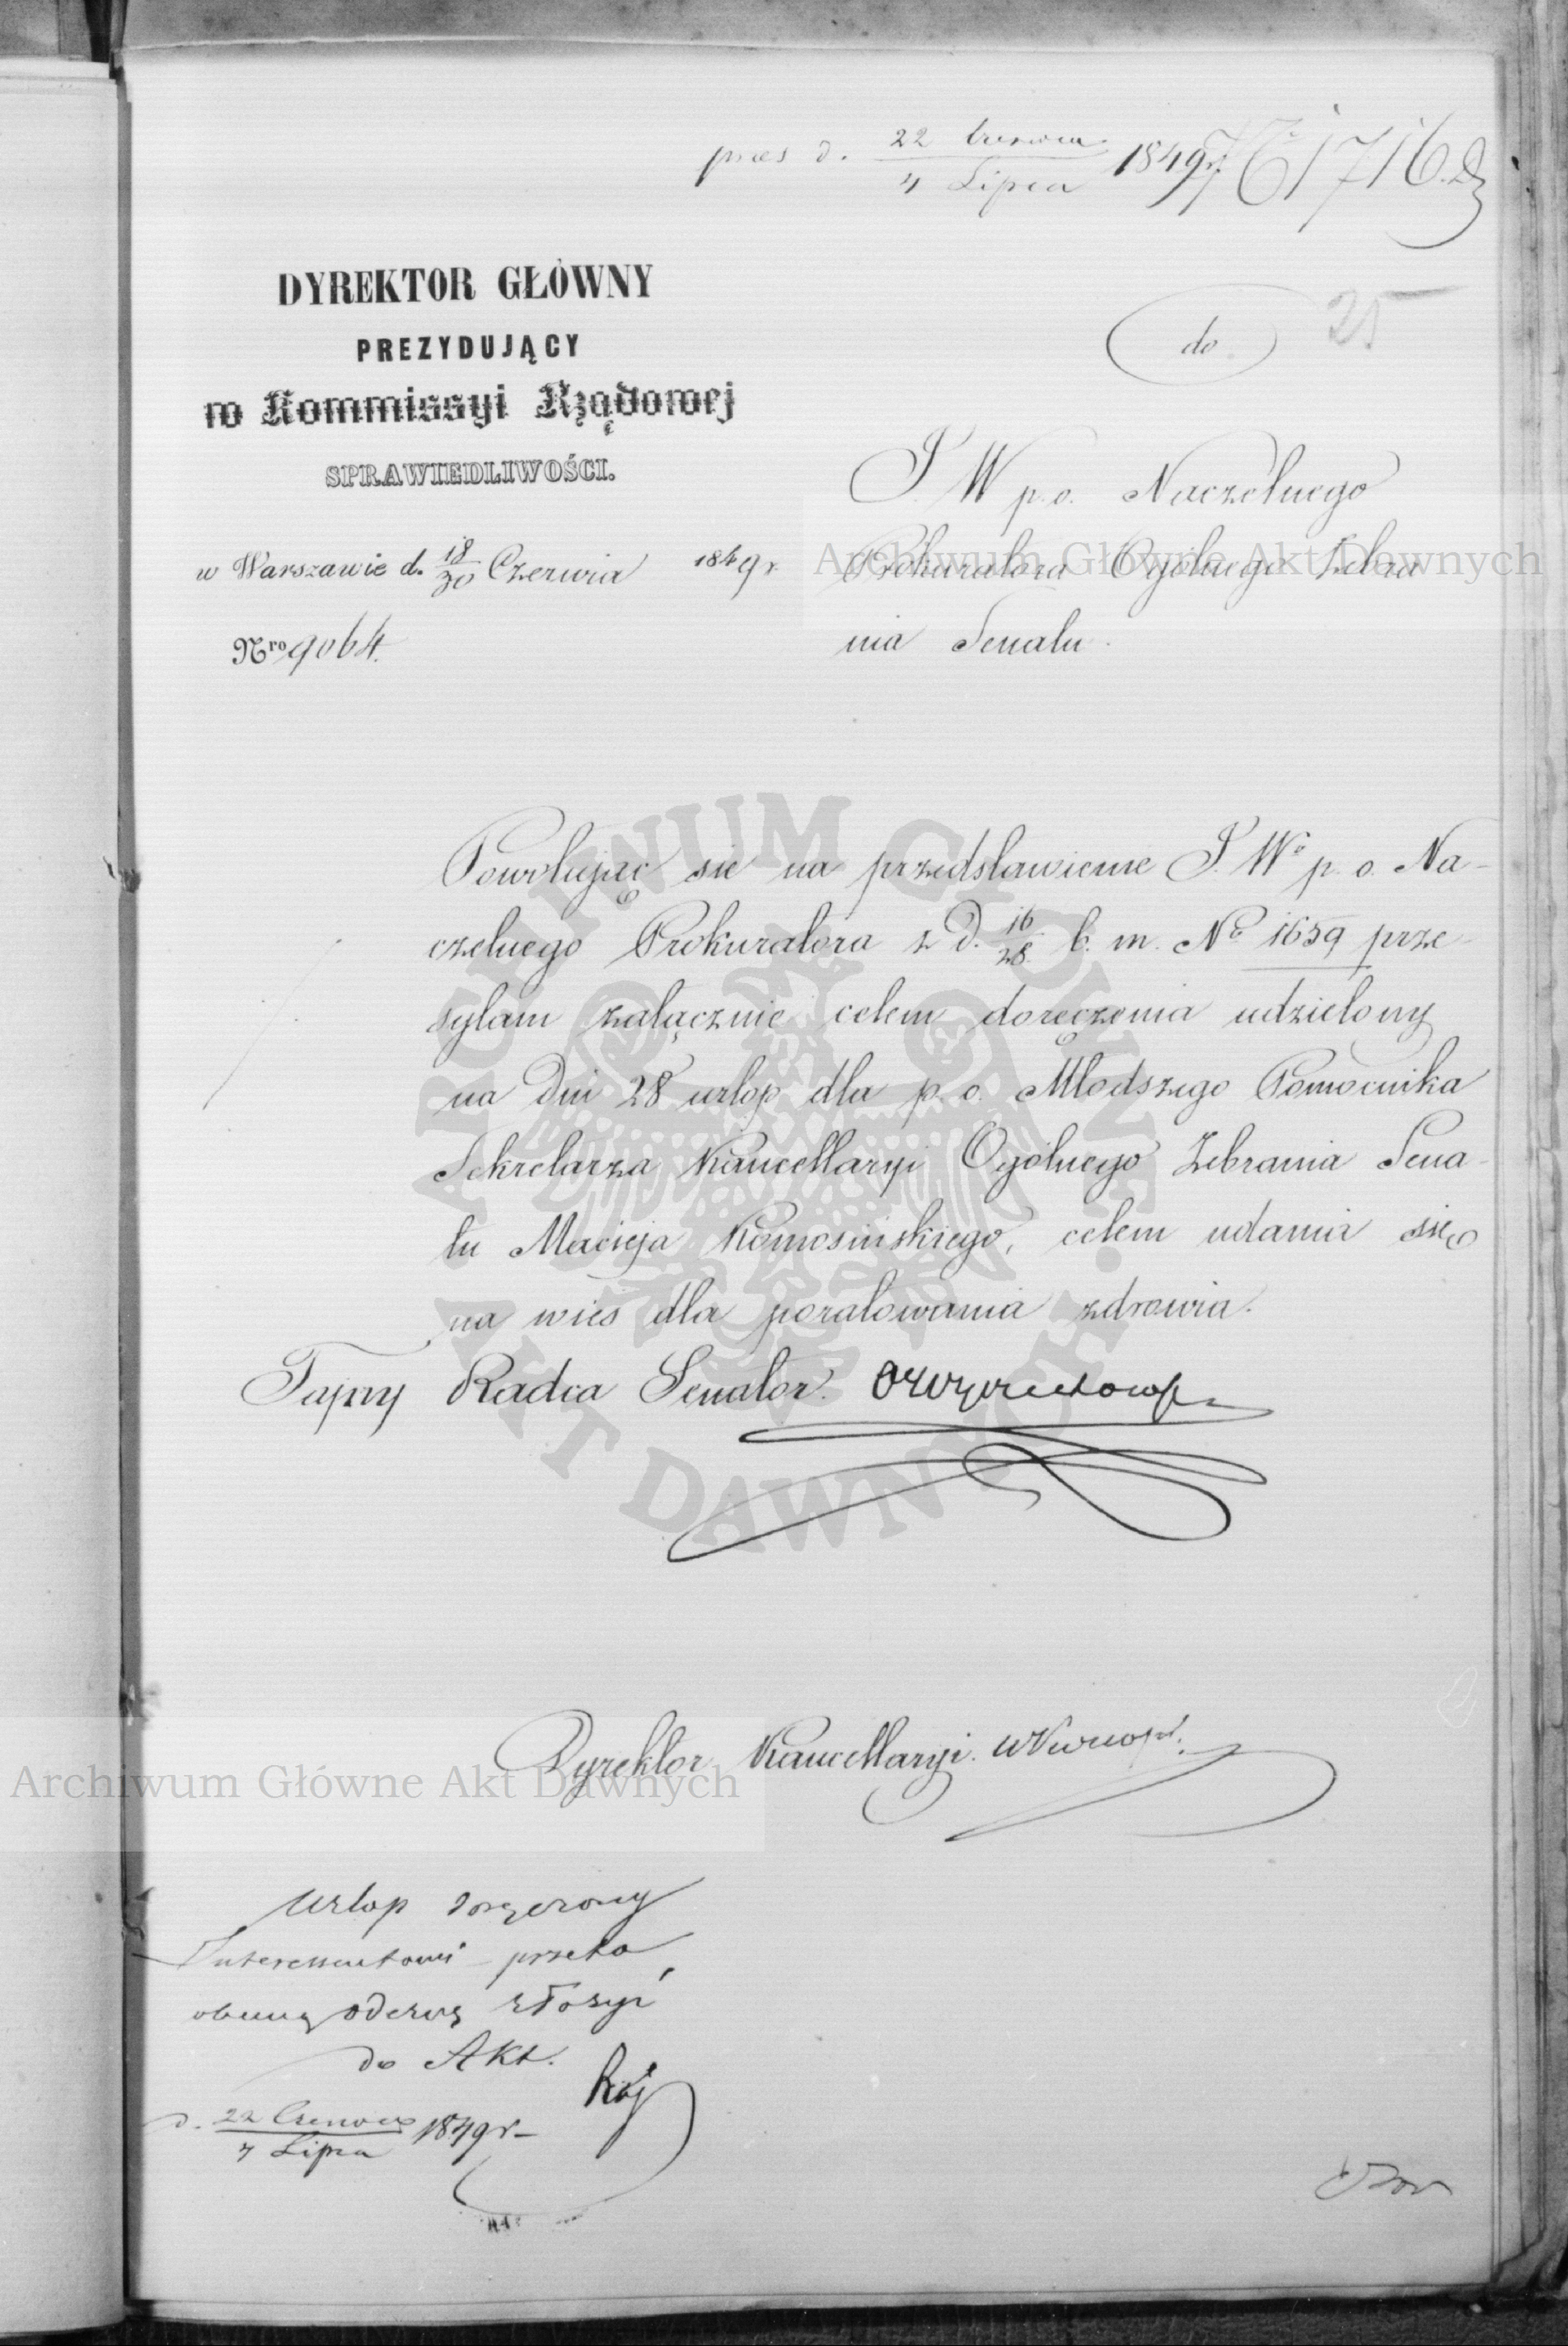 pres d. 22 Czerwca / 4 Lipca 1849 r. No 1716.
25
DYREKTOR GŁÓWNY
PREZYDUJĄCY
w Kommissyi Rządowej
SPRAWIEDLIWOŚCI.
w Warszawie d. 18/30 Czerwca 1849 r.
Nro 9064.
do
J W p.o. Naczelnego
Prokuratora Ogólnego Zebra
nia Senatu.
Powołując się na przedstawienie J. Wo p. o. Na-
czelnego Prokuratora z d. 16/28 b. m. No 1659 prze-
syłam załącznie celem doręczenia udzielony
na Dni 28 urlop dla p. o. Młodszego Pomocnika
Sekretarza Kancellaryi Ogólnego Zebrania Sena-
tu Macieja Komosińskiego, celem udania się
na wieś dla poratowania zdrowia.
Tajny Radca Senator.
Dyrektor Kancellaryi.
Urlop doręczony
Interessentowi przeto
obecną odezwę złożyć
do Akt.
d. 22 Czerwca / 4 Lipca 1849 r.
Archiwum Główne Akt Dawnych
Archiwum Główne Akt Dawnych
ARCHIWUM GŁÓWNE AKT DAWNYCH